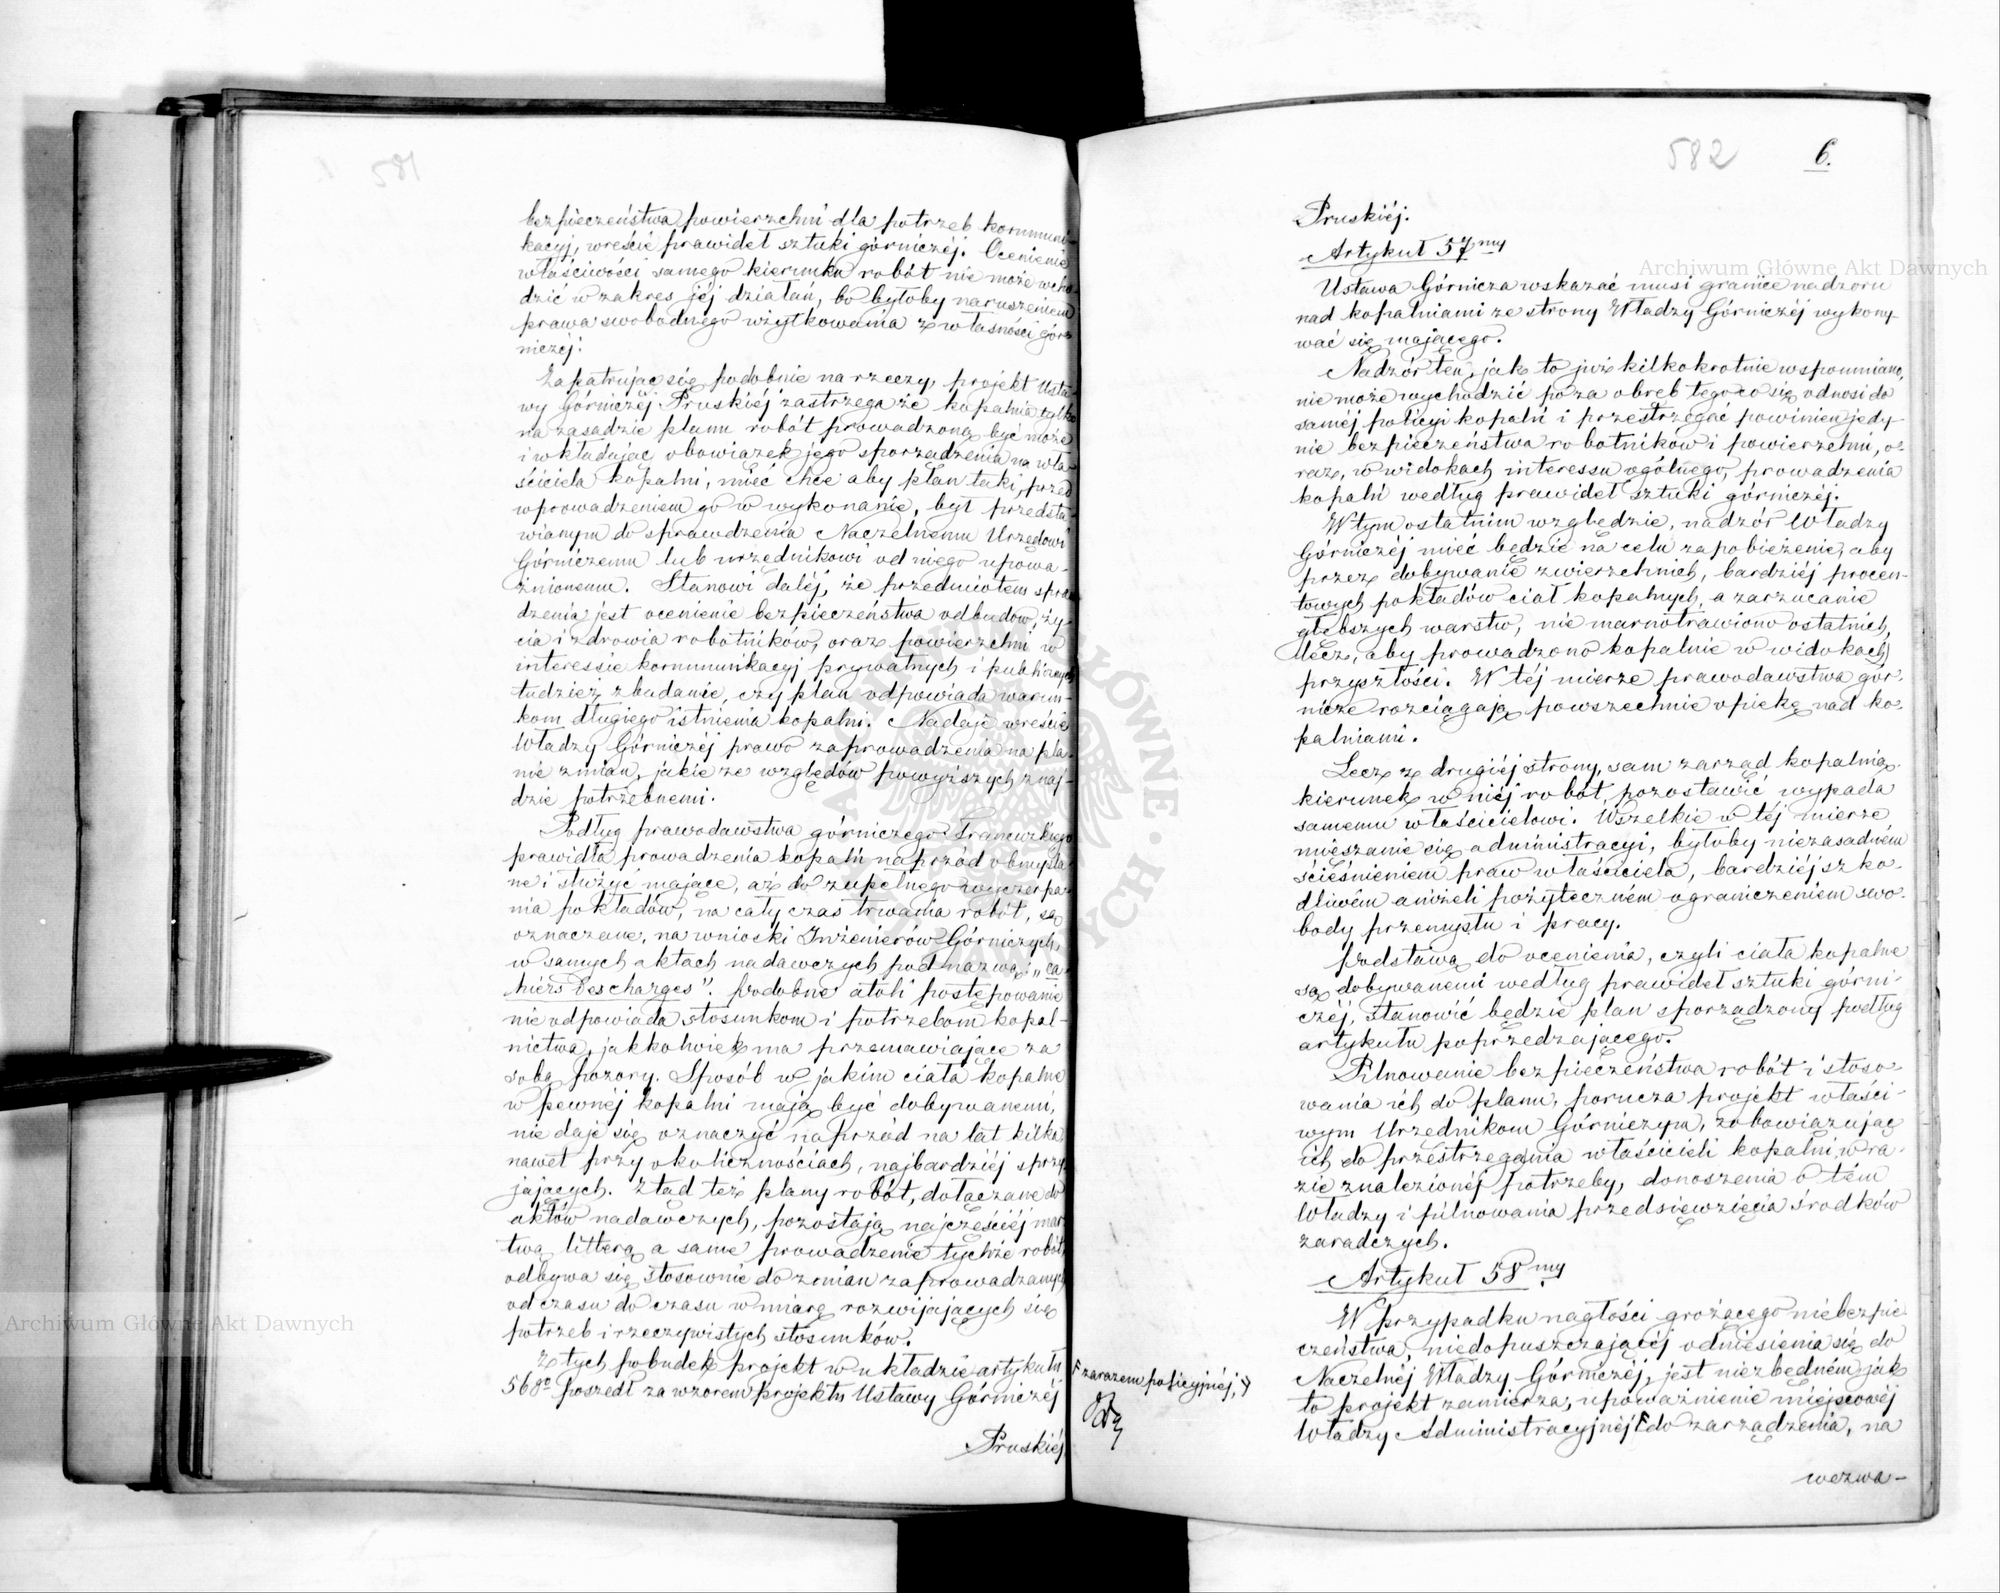 581
bezpieczeństwa powierzchni dla potrzeb kommuni-
kacyj, wreście prawideł sztuki górniczéj. Ocenienie
właściwości samego kierunku robót nie może wcho-
dzić w zakres jéj działań, bo byłoby naruszeniem
prawa swobodnego użytkowania z własności gór-
niczej.
Zapatrując się podobnie na rzeczy, projekt Usta-
wy Górniczéj Pruskiéj zastrzega że kopalnia tylko
na zasadzie planu robót prowadzoną być może
i wkładając obowiązek jego sporządzenia na wła-
ściciela kopalni, mieć chce aby plan taki, przed
wprowadzeniem go w wykonanie, był przedsta-
wianym do sprawdzenia Naczelnemu Urzędowi
Górniczemu lub urzędnikowi od niego upowa-
żnionemu. Stanowi daléj, że przedmiotem spraw
dzenia jest ocenienie bezpieczeństwa odbudów, ży-
cia i zdrowia robotników, oraz powierzchni w
interessie kommunikacyj prywatnych i publicznych
tudzież zbadanie, czy plan odpowiada warun-
kom długiego istnienia kopalni. Nadaje wreście
Władzy Górniczéj prawo zaprowadzenia na pla-
nie zmian, jakie ze względów powyższych znaj-
dzie potrzebnemi.
Podług prawodawstwa górniczego Francuzkiego
prawidła prowadzenia kopalń naprzód obmyśla-
ne i służyć mające, aż do zupełnego wyczerpa-
nia pokładów, na cały czas trwania robót, są
oznaczane, na wnioski Inżenierów Górniczych,
w samych aktach nadawczych pod nazwą: „ca-
hiers des charges”. Podobne atoli postępowanie
nie odpowiada stosunkom i potrzebom kopal-
nictwa, jakkolwiek ma przemawiające za
sobą pozory. Sposób w jakim ciała kopalne
w pewnéj kopalni mają być dobywanemi,
nie daje się oznaczyć naprzód na lat kilka
nawet przy okolicznościach, najbardziéj sprzy-
jających. Ztąd też plany robót, dołączane do
aktów nadawczych, pozostają najczęściéj mar-
twą litterą a same prowadzenie tychże robót
odbywa się stosownie do zmian zaprowadzanych
od czasu do czasu w miarę rozwijających się
potrzeb i rzeczywistych stosunków.
Z tych pobudek projekt w układzie artykułu
56go poszedł za wzorem projektu Ustawy Górniczéj
Pruskiéj
582 6.
Pruskiéj.
Artykuł 57my
Ustawa Górnicza wskazać musi granice nadzoru
nad kopalniami ze strony Władzy Górniczéj wykony-
wać się mającego.
Nadzór ten, jak to już kilkokrotnie wspomniano,
nie może wychodzić po za obręb tego co się odnosi do
saméj policyi kopalń i przestrzegać powinien jedy-
nie bezpieczeństwa robotników i powierzchni, o-
raz, w widokach interessu ogólnego, prowadzenia
kopalń według prawideł sztuki górniczéj.
W tym ostatnim względzie, nadzór Władzy
Górniczéj mieć będzie na celu zapobieżenie, aby
przez dobywanie zwierzchnich, bardziéj procen-
towych pokładów ciał kopalnych, a zarzucanie
głębszych warstw, nie marnotrawiono ostatnich,
lecz, aby prowadzono kopalnie w widokach
przyszłości. W téj mierze prawodawstwa gór-
nicze rozciągają powszechnie opiekę nad ko-
palniami.
Lecz z drugiéj strony, sam zarząd kopalnią
kierunek w niéj robót, pozostawić wypada
samemu właścicielowi. Wszelkie w téj mierze
mieszanie się administracyi, byłoby niezasadném
ścieśnieniem praw właściciela, bardziéj szko-
dliwém aniżeli pożyteczném ograniczeniem swo-
body przemysłu i pracy.
Podstawą do ocenienia, czyli ciała kopalne
są dobywanemi według prawideł sztuki górni-
czéj, stanowić będzie plan sporządzony podług
artykułu poprzedzającego.
Pilnowanie bezpieczeństwa robót i stoso-
wania ich do planu, porucza projekt właści-
wym Urzędnikom Górniczym, zobowiązując
ich do przestrzegania właścicieli kopalni, w ra-
zie znalezionéj potrzeby, donoszenia o tém
Władzy i pilnowania przedsięwzięcia środków
zaradczych.
Artykuł 58my
W przypadku nagłości grożącego niebezpie-
czeństwa, niedopuszczającéj odniesienia się do
Naczelnéj Władzy Górniczéj, jest niezbędném, jak
to projekt zamierza, upoważnienie miejscowéj
Władzy Administracyjnéj do zarządzenia, na
wezwa-
zarazem policyjnéj,
Archiwum Główne Akt Dawnych
Archiwum Główne Akt Dawnych